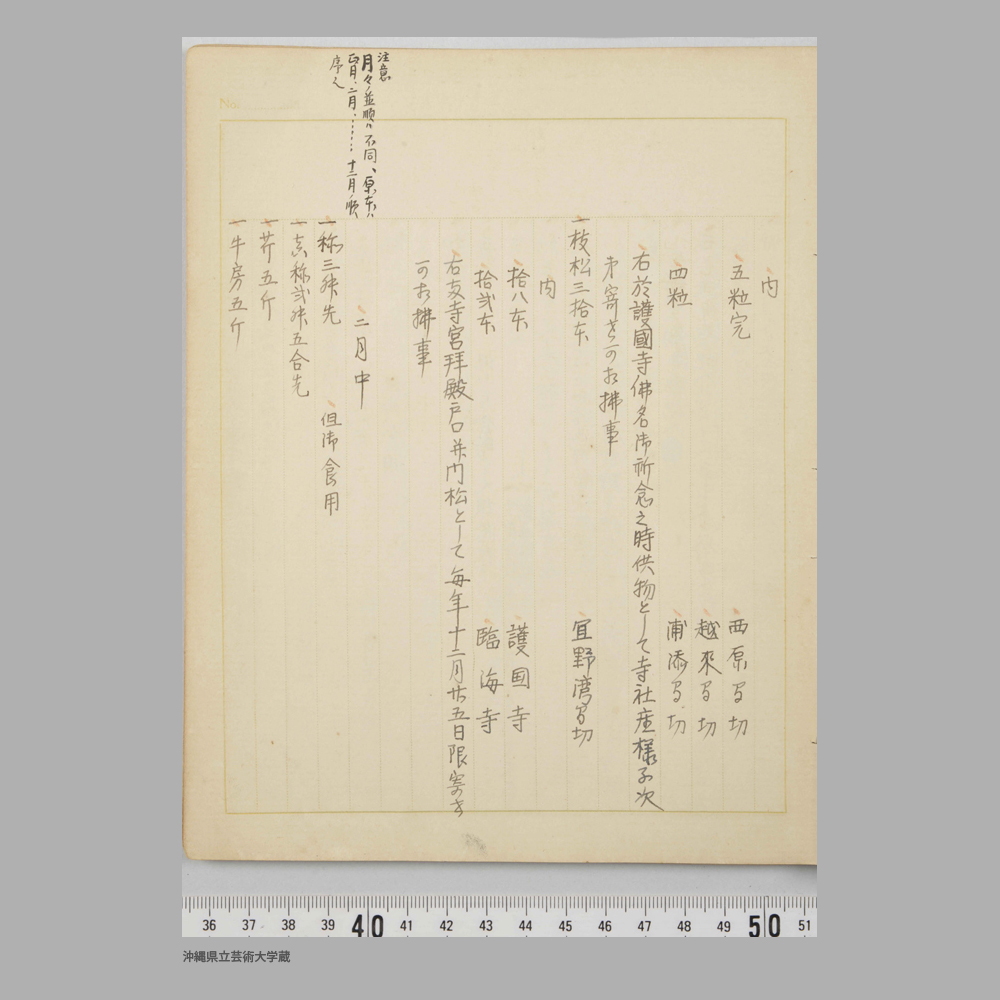 内
五粒完 西原間切
越来間切
四粒 浦添間切
右於護國寺佛名御祈念之時供物として寺社座様子次
第寄せ可相拂事
一枝松三拾本 宜野湾間切
内
拾八本 護国寺
拾弐本 臨海寺
右支寺宮拝殿戸口并門松として毎年十二月廿五日限寄せ
可相拂事
二月中
注意
月々ノ並順ハ不同、原本ハ
正月、二月、……十二月ノ順
序ニ
一 三舛先 但御食用
一 弐舛五合先
一芹五斤
一牛房五斤
No.
36 37 38 39 40 41 42 43 44 45 46 47 48 49 50 51
沖縄県立芸術大学蔵